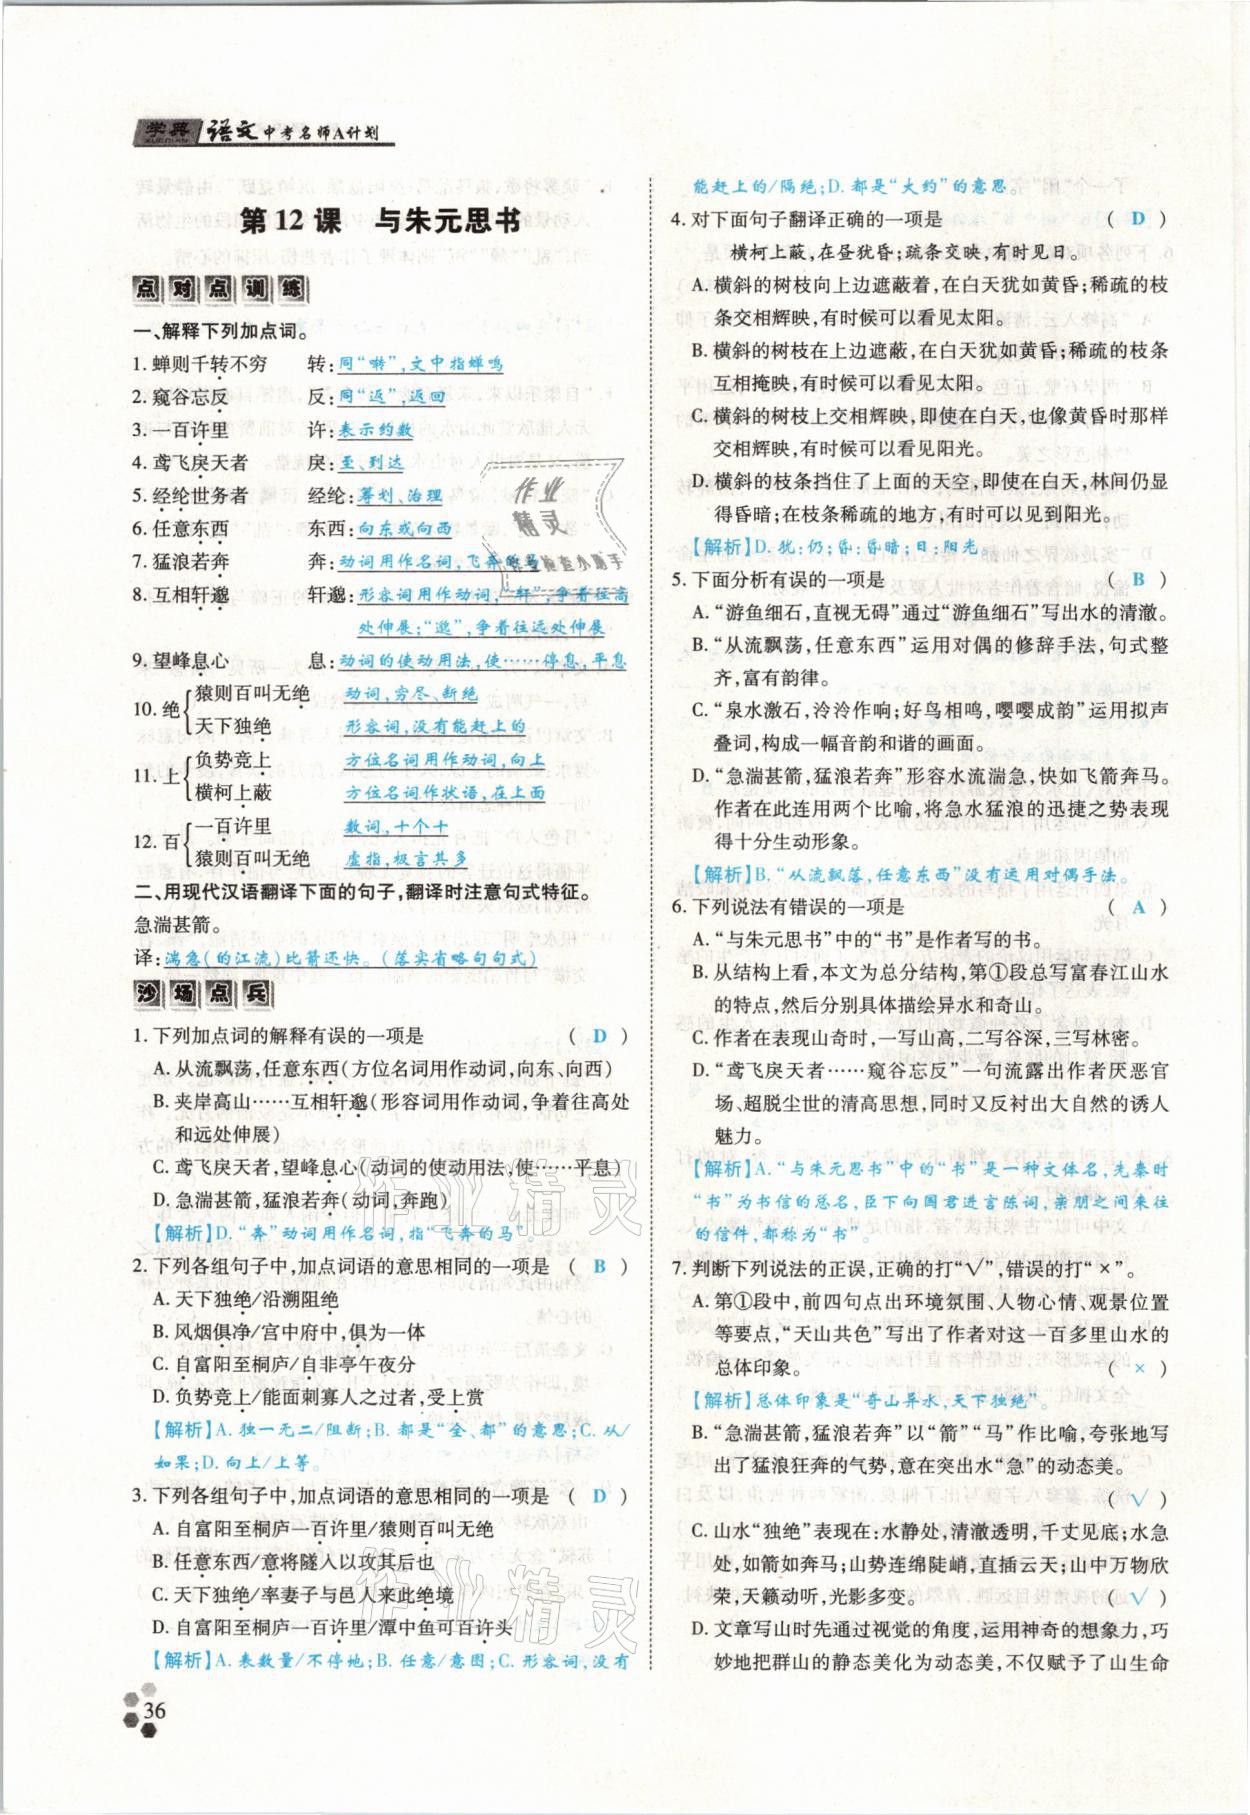 学典 语文中考名师A计划
XUEDIAN
第12课　与朱元思书
点对点训练
一、解释下列加点词。
1. 蝉则千转不穷　转:同“啭”,文中指蝉鸣
2. 窥谷忘反　反:同“返”,返回
3. 一百许里　许:表示约数
4. 鸢飞戾天者　戾:至,到达
5. 经纶世务者　经纶:筹划、治理
6. 任意东西　东西:向东或向西
7. 猛浪若奔　奔:动词用作名词,飞奔的马
8. 互相轩邈　轩邈:形容词用作动词,“轩”,争着往高
处伸展;“邈”,争着往远处伸展
9. 望峰息心　息:动词的使动用法,使……停息,平息
10. 绝
猿则百叫无绝　动词,穷尽、断绝
天下独绝　形容词,没有能赶上的
11. 上
负势竞上　方位名词用作动词,向上
横柯上蔽　方位名词作状语,在上面
12. 百
一百许里　数词,十个十
猿则百叫无绝　虚指,极言其多
二、用现代汉语翻译下面的句子,翻译时注意句式特征。
急湍甚箭。
译:湍急(的江流)比箭还快。(落实省略句句式)
沙场点兵
1. 下列加点词的解释有误的一项是　( D )
A. 从流飘荡,任意东西(方位名词用作动词,向东、向西)
B. 夹岸高山……互相轩邈(形容词用作动词,争着往高处
和远处伸展)
C. 鸢飞戾天者,望峰息心(动词的使动用法,使……平息)
D. 急湍甚箭,猛浪若奔(动词,奔跑)
【解析】D. “奔”动词用作名词,指“飞奔的马”。
2. 下列各组句子中,加点词语的意思相同的一项是　( B )
A. 天下独绝/沿溯阻绝
B. 风烟俱净/宫中府中,俱为一体
C. 自富阳至桐庐/自非亭午夜分
D. 负势竞上/能面刺寡人之过者,受上赏
【解析】A. 独一无二/阻断;B. 都是“全、都”的意思;C. 从/
如果;D. 向上/上等。
3. 下列各组句子中,加点词语的意思相同的一项是　( D )
A. 自富阳至桐庐一百许里/猿则百叫无绝
B. 任意东西/意将隧入以攻其后也
C. 天下独绝/率妻子与邑人来此绝境
D. 自富阳至桐庐一百许里/潭中鱼可百许头
【解析】A. 表数量/不停地;B. 任意/意图;C. 形容词,没有
36
能赶上的/隔绝;D. 都是“大约”的意思。
4. 对下面句子翻译正确的一项是　( D )
横柯上蔽,在昼犹昏;疏条交映,有时见日。
A. 横斜的树枝向上边遮蔽着,在白天犹如黄昏;稀疏的枝
条交相辉映,有时候可以看见太阳。
B. 横斜的树枝在上边遮蔽,在白天犹如黄昏;稀疏的枝条
互相掩映,有时候可以看见太阳。
C. 横斜的树枝上交相辉映,即使在白天,也像黄昏时那样
交相辉映,有时候可以看见阳光。
D. 横斜的枝条挡住了上面的天空,即使在白天,林间仍显
得昏暗;在枝条稀疏的地方,有时可以见到阳光。
【解析】D. 犹:仍;昏:昏暗;日:阳光。
5. 下面分析有误的一项是　( B )
A. “游鱼细石,直视无碍”通过“游鱼细石”写出水的清澈。
B. “从流飘荡,任意东西”运用对偶的修辞手法,句式整
齐,富有韵律。
C. “泉水激石,泠泠作响;好鸟相鸣,嘤嘤成韵”运用拟声
叠词,构成一幅音韵和谐的画面。
D. “急湍甚箭,猛浪若奔”形容水流湍急,快如飞箭奔马。
作者在此连用两个比喻,将急水猛浪的迅捷之势表现
得十分生动形象。
【解析】B. “从流飘落,任意东西”没有运用对偶手法。
6. 下列说法有错误的一项是　( A )
A. “与朱元思书”中的“书”是作者写的书。
B. 从结构上看,本文为总分结构,第①段总写富春江山水
的特点,然后分别具体描绘异水和奇山。
C. 作者在表现山奇时,一写山高,二写谷深,三写林密。
D. “鸢飞戾天者……窥谷忘反”一句流露出作者厌恶官
场、超脱尘世的清高思想,同时又反衬出大自然的诱人
魅力。
【解析】A. “与朱元思书”中的“书”是一种文体名,先秦时
“书”为书信的总名,臣下向国君进言陈词,亲朋之间来往
的信件,都称为“书”。
7. 判断下列说法的正误,正确的打“√”,错误的打“×”。
A. 第①段中,前四句点出环境氛围、人物心情、观景位置
等要点,“天山共色”写出了作者对这一百多里山水的
总体印象。　( × )
【解析】总体印象是“奇山异水,天下独绝”。
B. “急湍甚箭,猛浪若奔”以“箭”“马”作比喻,夸张地写
出了猛浪狂奔的气势,意在突出水“急”的动态美。
( √ )
C. 山水“独绝”表现在:水静处,清澈透明,千丈见底;水急
处,如箭如奔马;山势连绵陡峭,直插云天;山中万物欣
荣,天籁动听,光影多变。　( √ )
D. 文章写山时先从视觉的角度,运用神奇的想象力,巧
妙地把群山的静态美化为动态美,不仅赋予了山生命
作业精灵
作业检查小助手
作业精灵
作业精灵